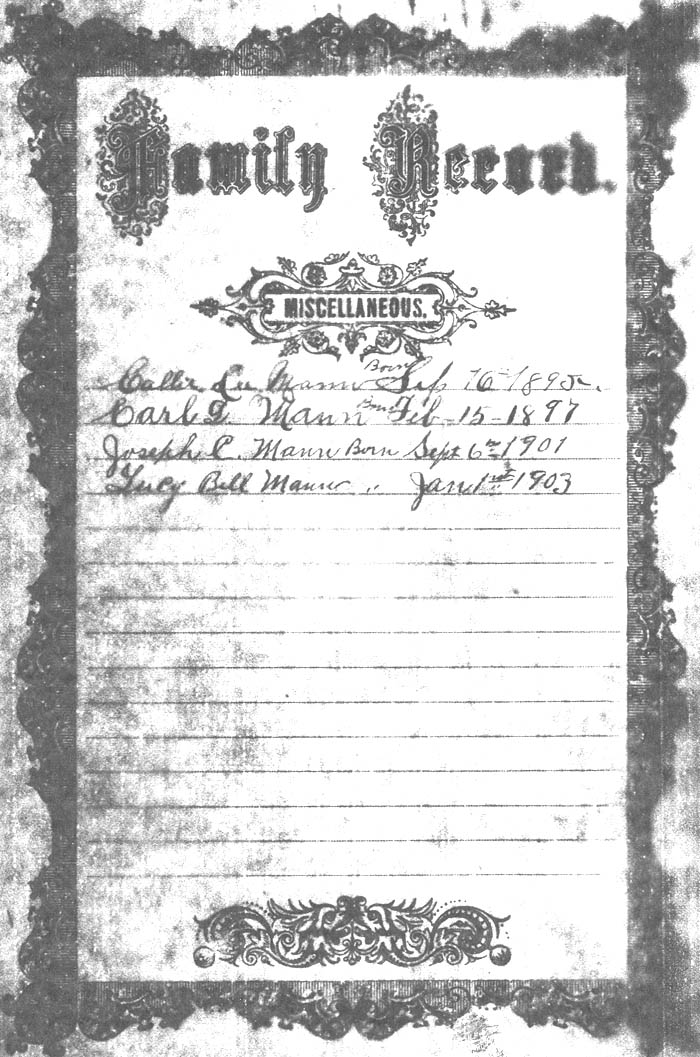 Family Record.
MISCELLANEOUS.
Callie Lu Mann Born Sep 16 - 1895.
Carl D. Mann Born Feb - 15 - 1897
Joseph C. Mann Born Sept 6th 1901
Lucy Bell Mann " Jan 1st 1903